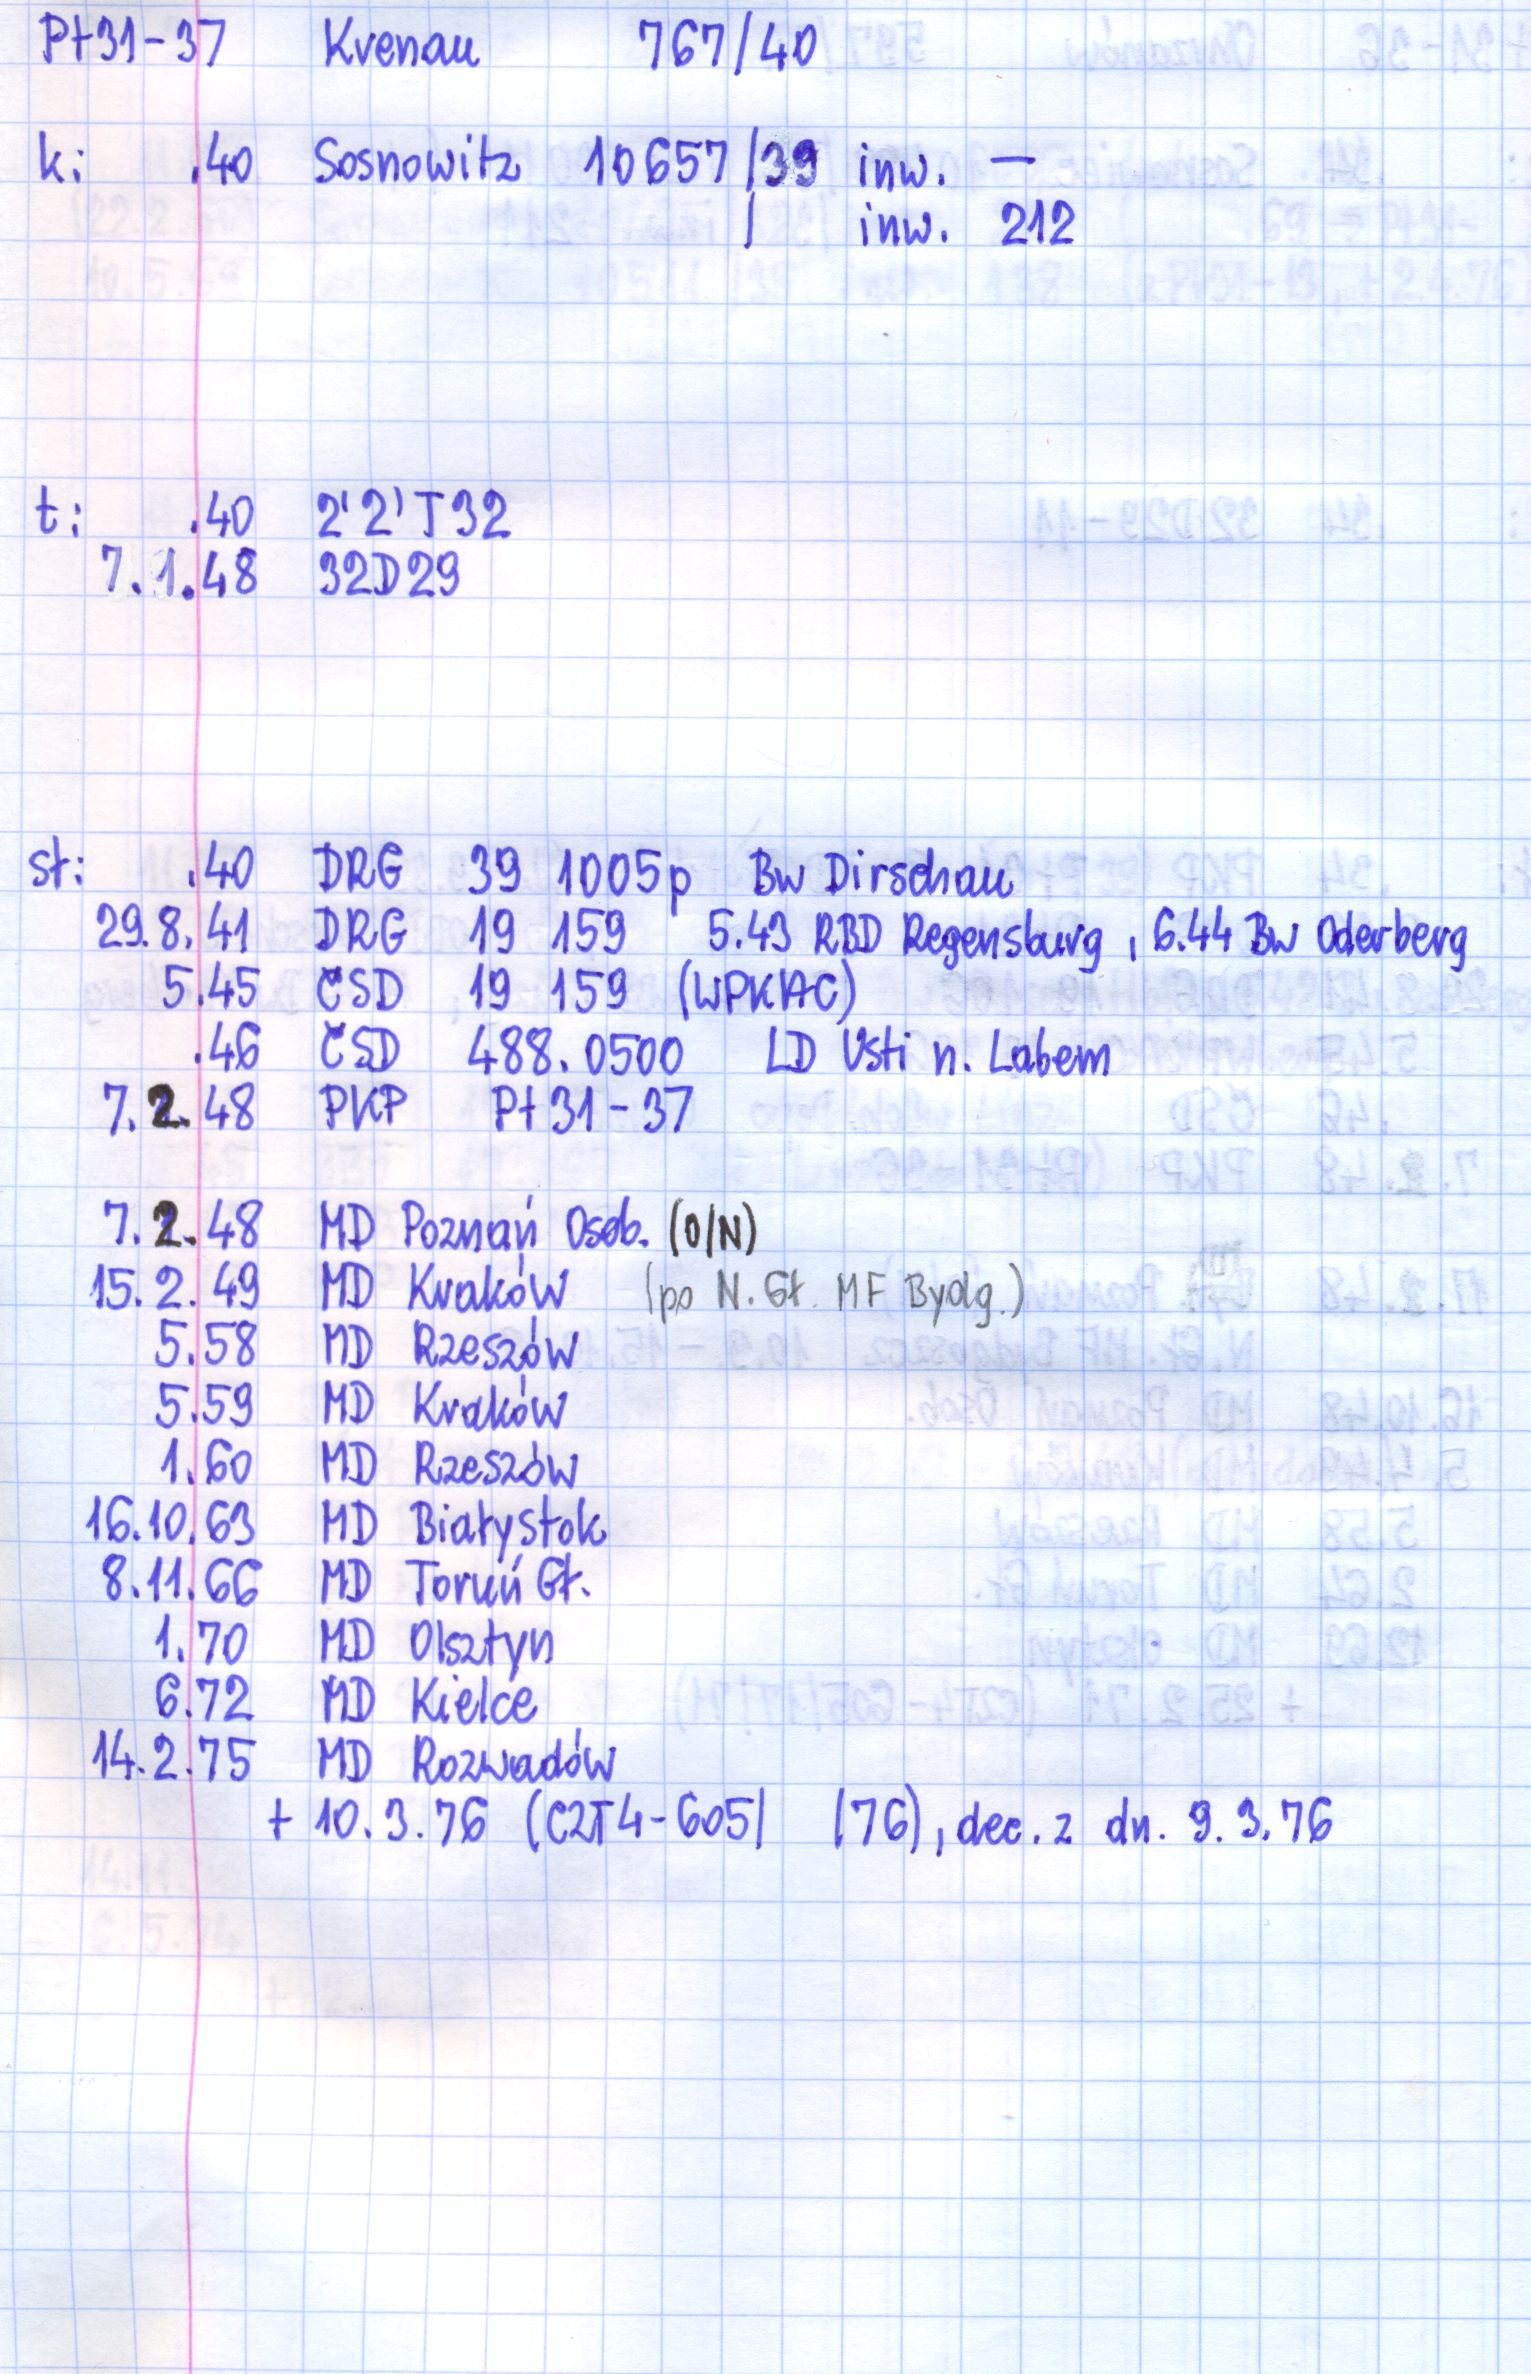 Pt31-37 Krenau 767/40
k: .40 Sosnowitz 10657/39 inw. —
/ inw. 212
t: .40 2'2'T32
7.1.48 32D29
st: .40 DRG 39 1005p Bw Dirschau
29.8.41 DRG 19 159 5.43 RBD Regensburg, 6.44 Bw Oderberg
5.45 ČSD 19 159 (WPKAC)
.46 ČSD 488.0500 LD Usti n. Labem
7.2.48 PKP Pt31-37
7.2.48 MD Poznań Osob. (O/N)
15.2.49 MD Kraków (po N.Gł. MF Bydg.)
5.58 MD Rzeszów
5.59 MD Kraków
1.60 MD Rzeszów
16.10.63 MD Białystok
8.11.66 MD Toruń Gł.
1.70 MD Olsztyn
6.72 MD Kielce
14.2.75 MD Rozwadów
+ 10.3.76 (C2T4-605/ /76), dec. z dn. 9.3.76